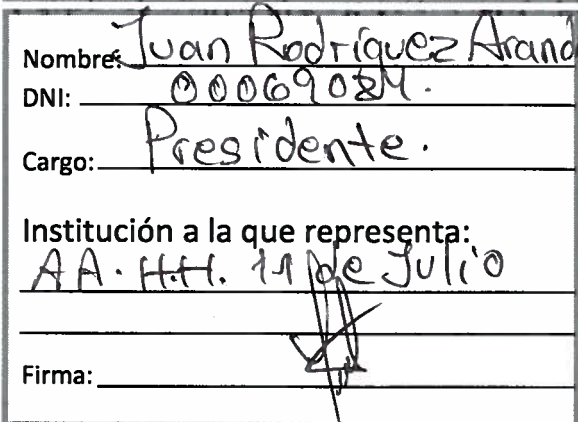 Nombre: Juan Rodríguez Arand
DNI: 00069084.
Cargo: Presidente.
Institución a la que representa:
AA. H.H. 11 de Julio
Firma: